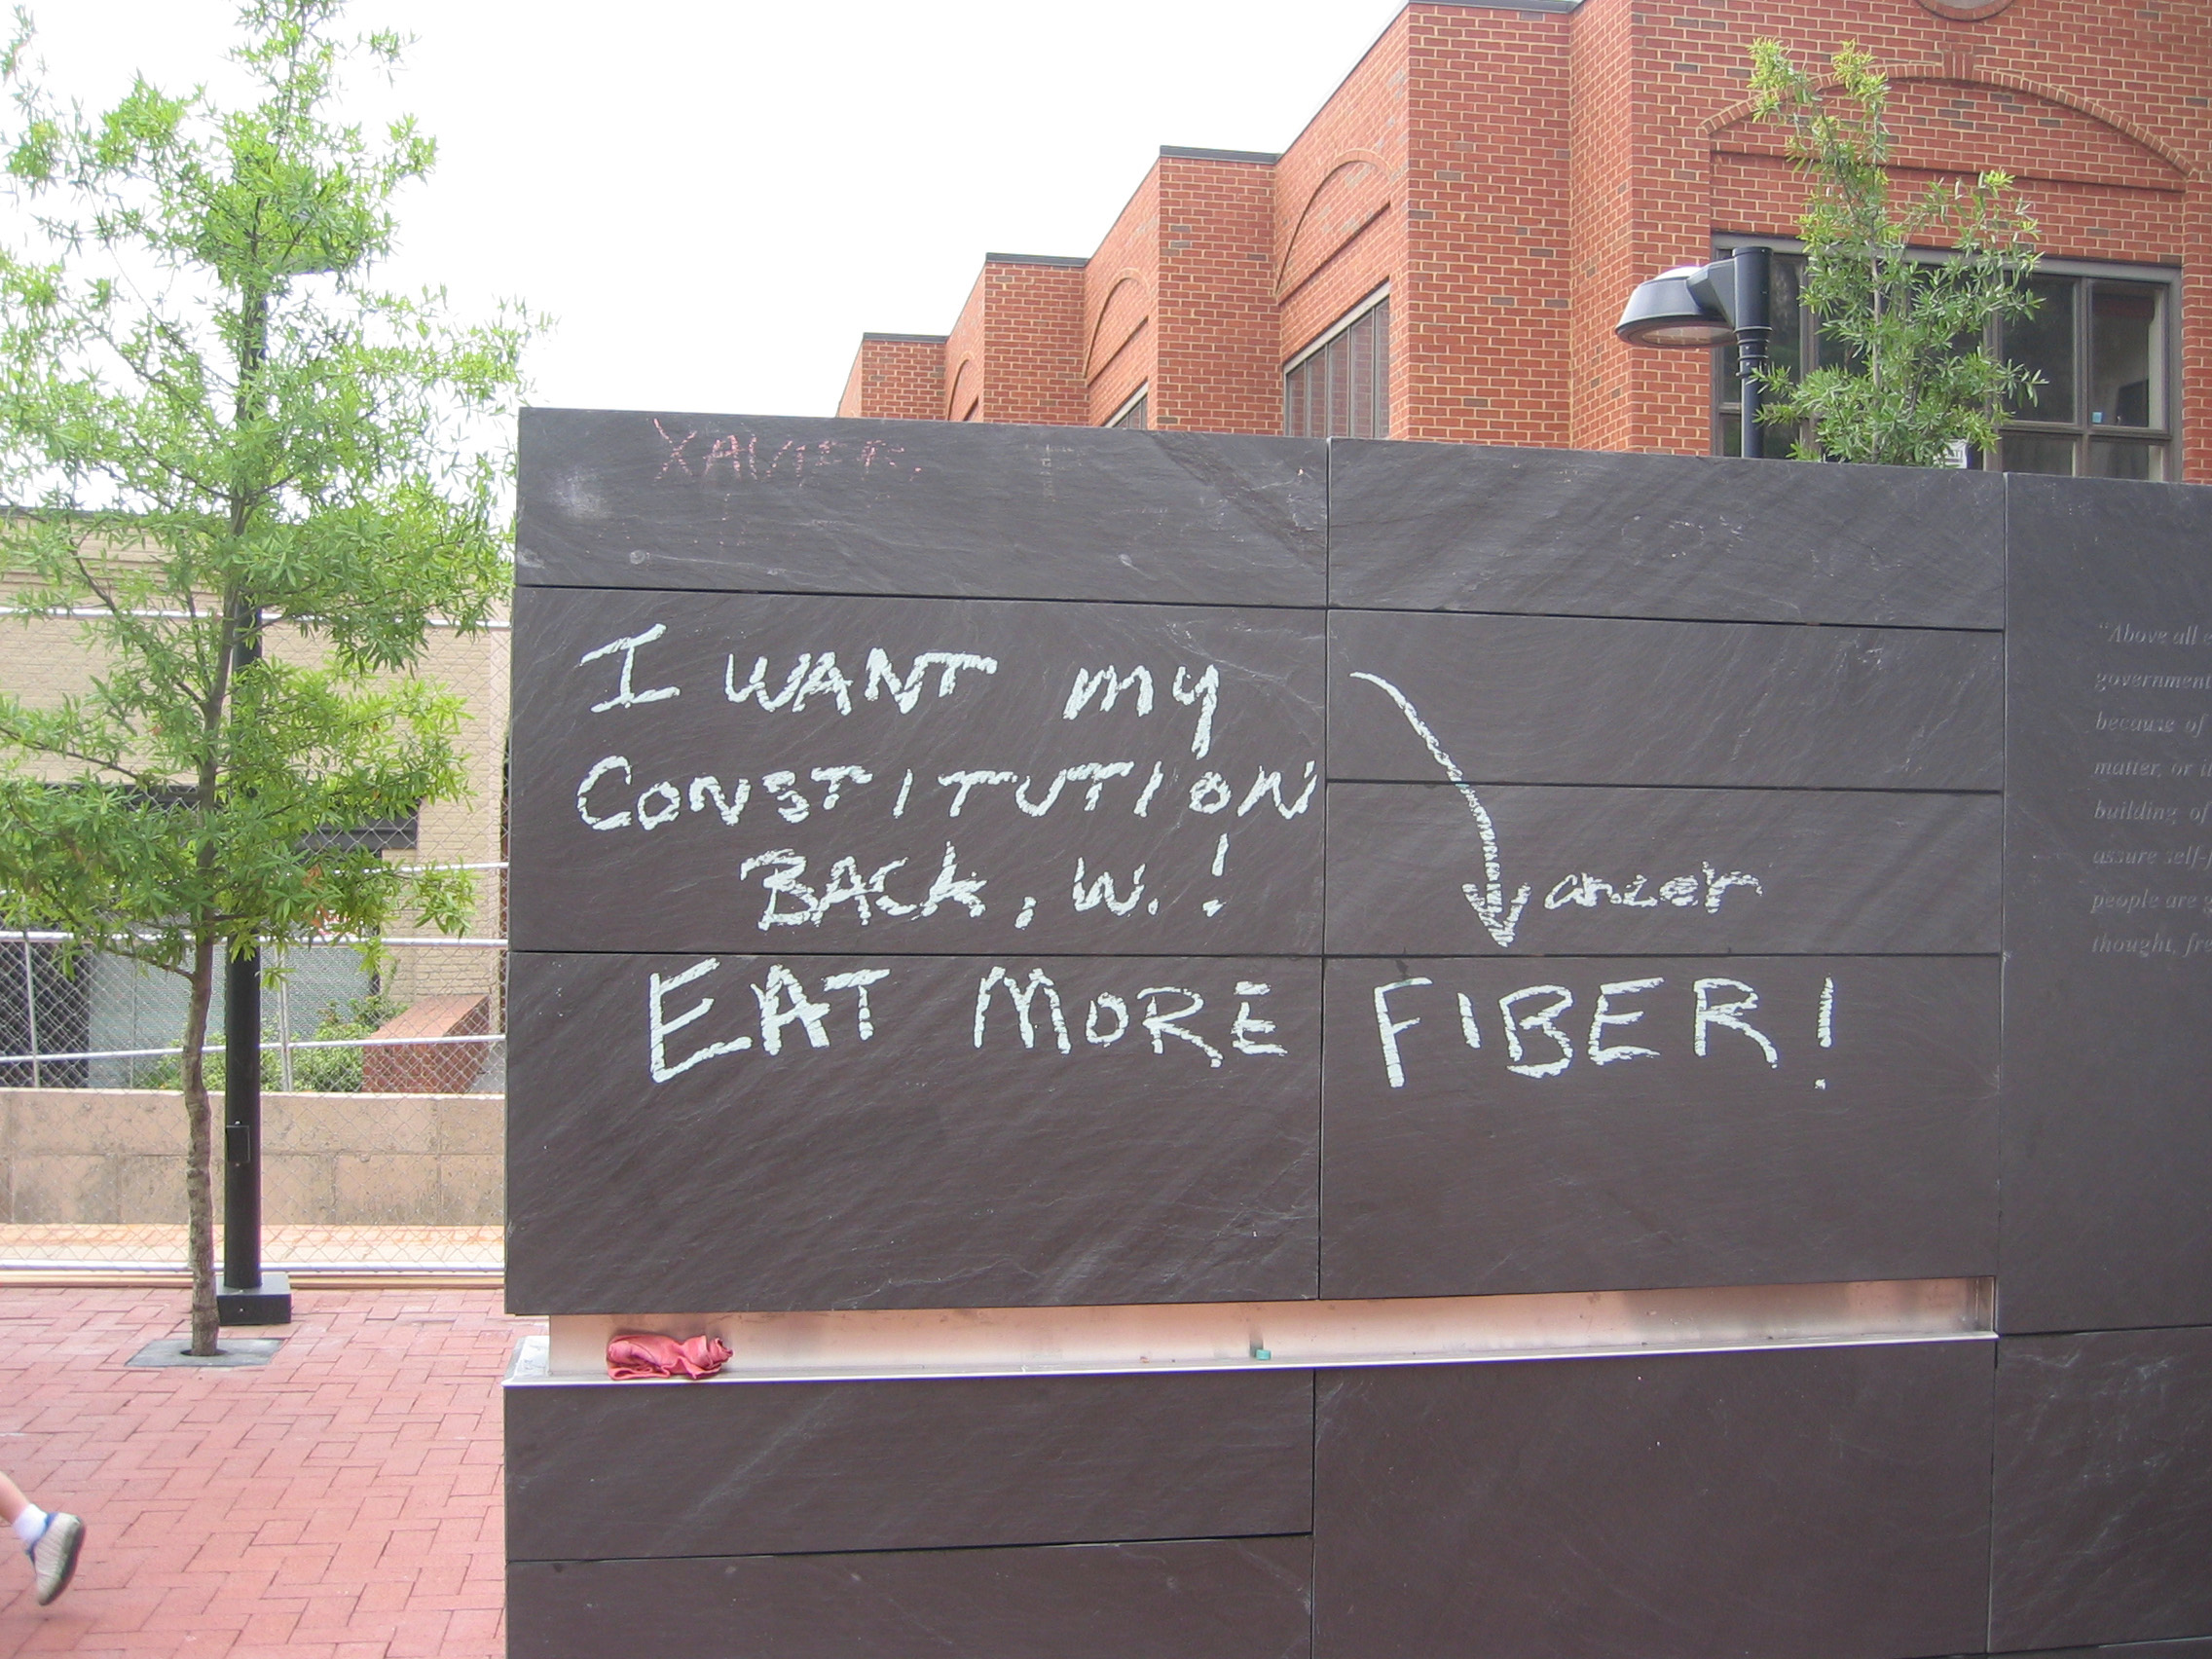 XAVIER.
I WANT my
CONSTITUTION
BACK, W.!
anzer
EAT MORE FIBER!
"Above all
government
because of
matter, or
building of
assure self-
people are
thought,